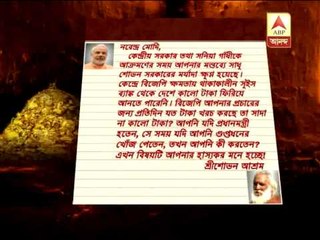 ABP
আনন্দ
নরেন্দ্র মোদি,
কেন্দ্রীয় সরকার তথা সনিয়া গাঁধীকে
আক্রমণের সময় আপনার মন্তব্যে সাধু
শোভন সরকারের মর্যাদা ক্ষুণ্ণ হয়েছে।
কেন্দ্রে বিজেপি ক্ষমতায় থাকাকালীন সুইস
ব্যাঙ্ক থেকে দেশে কালো টাকা ফিরিয়ে
আনতে পারেনি। বিজেপি আপনার প্রচারের
জন্য প্রতিদিন যত টাকা খরচ করছে তা সাদা
না কালো টাকা? আপনি যদি প্রধানমন্ত্রী
হতেন, সে সময় যদি আপনি গুপ্তধনের
খোঁজ পেতেন, তখন আপনি কী করতেন?
এখন বিষয়টি আপনার হাস্যকর মনে হচ্ছে!
শ্রীশোভন আশ্রম